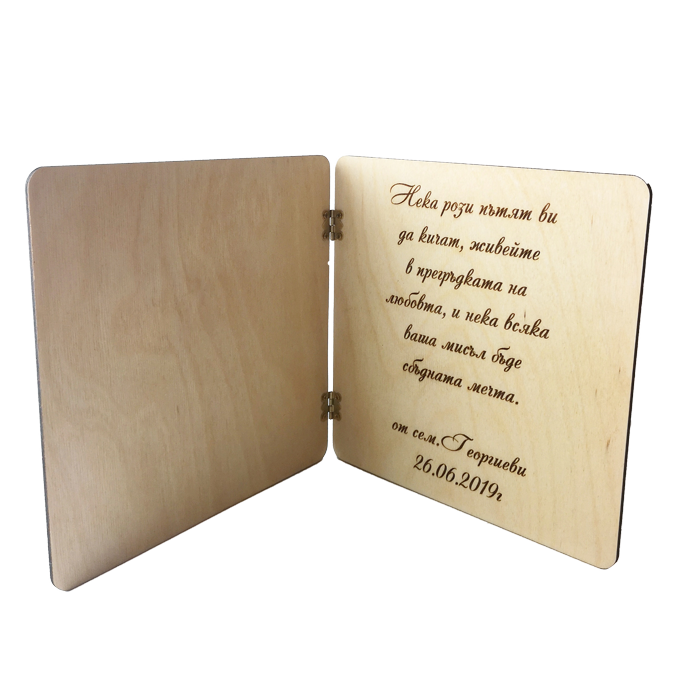 Нека рози пътят ви
да кичат, живейте
в прегръдката на
любовта, и нека всяка
ваша мисъл бъде
сбъдната мечта.
от сем.Георгиеви
26.06.2019г